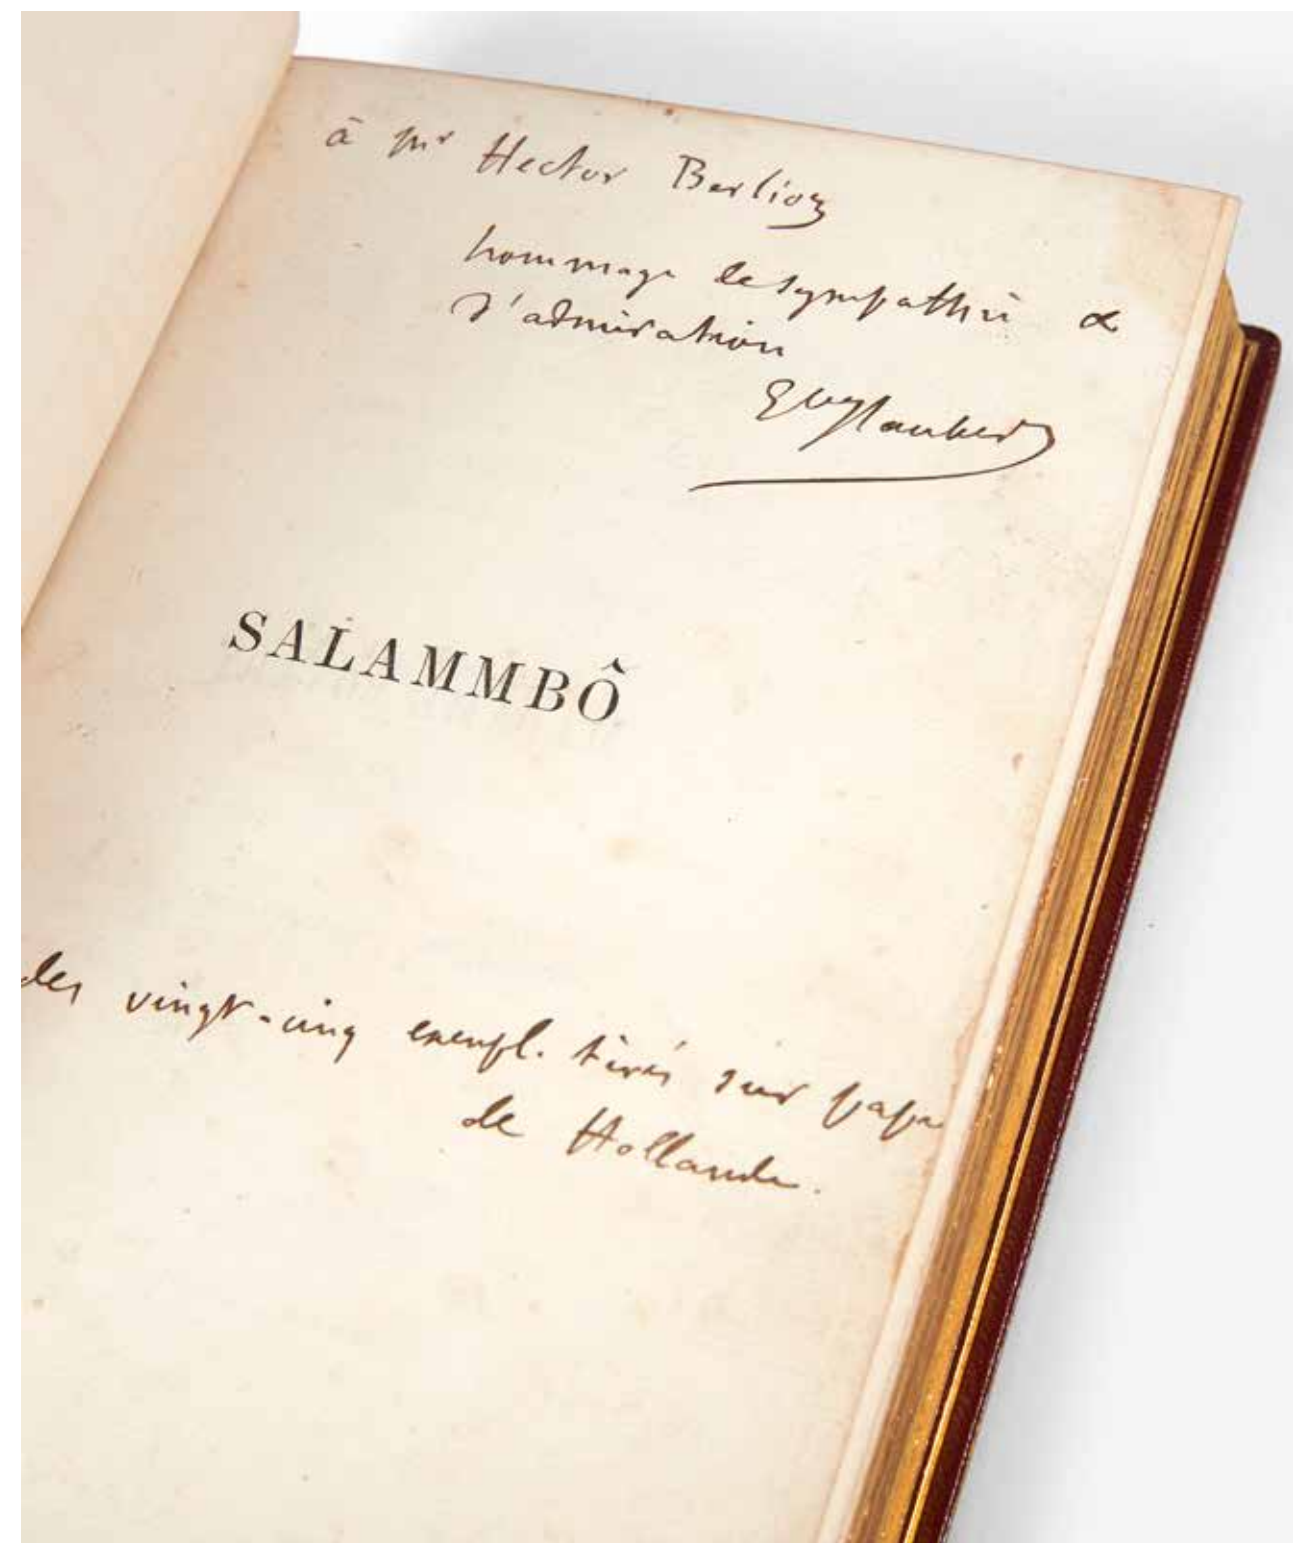 à mr Hector Berlioz
hommage de sympathie &
d'admiration
Gve Flaubert
SALAMMBÔ
des vingt-cinq exempl. tirés sur papier
de Hollande.